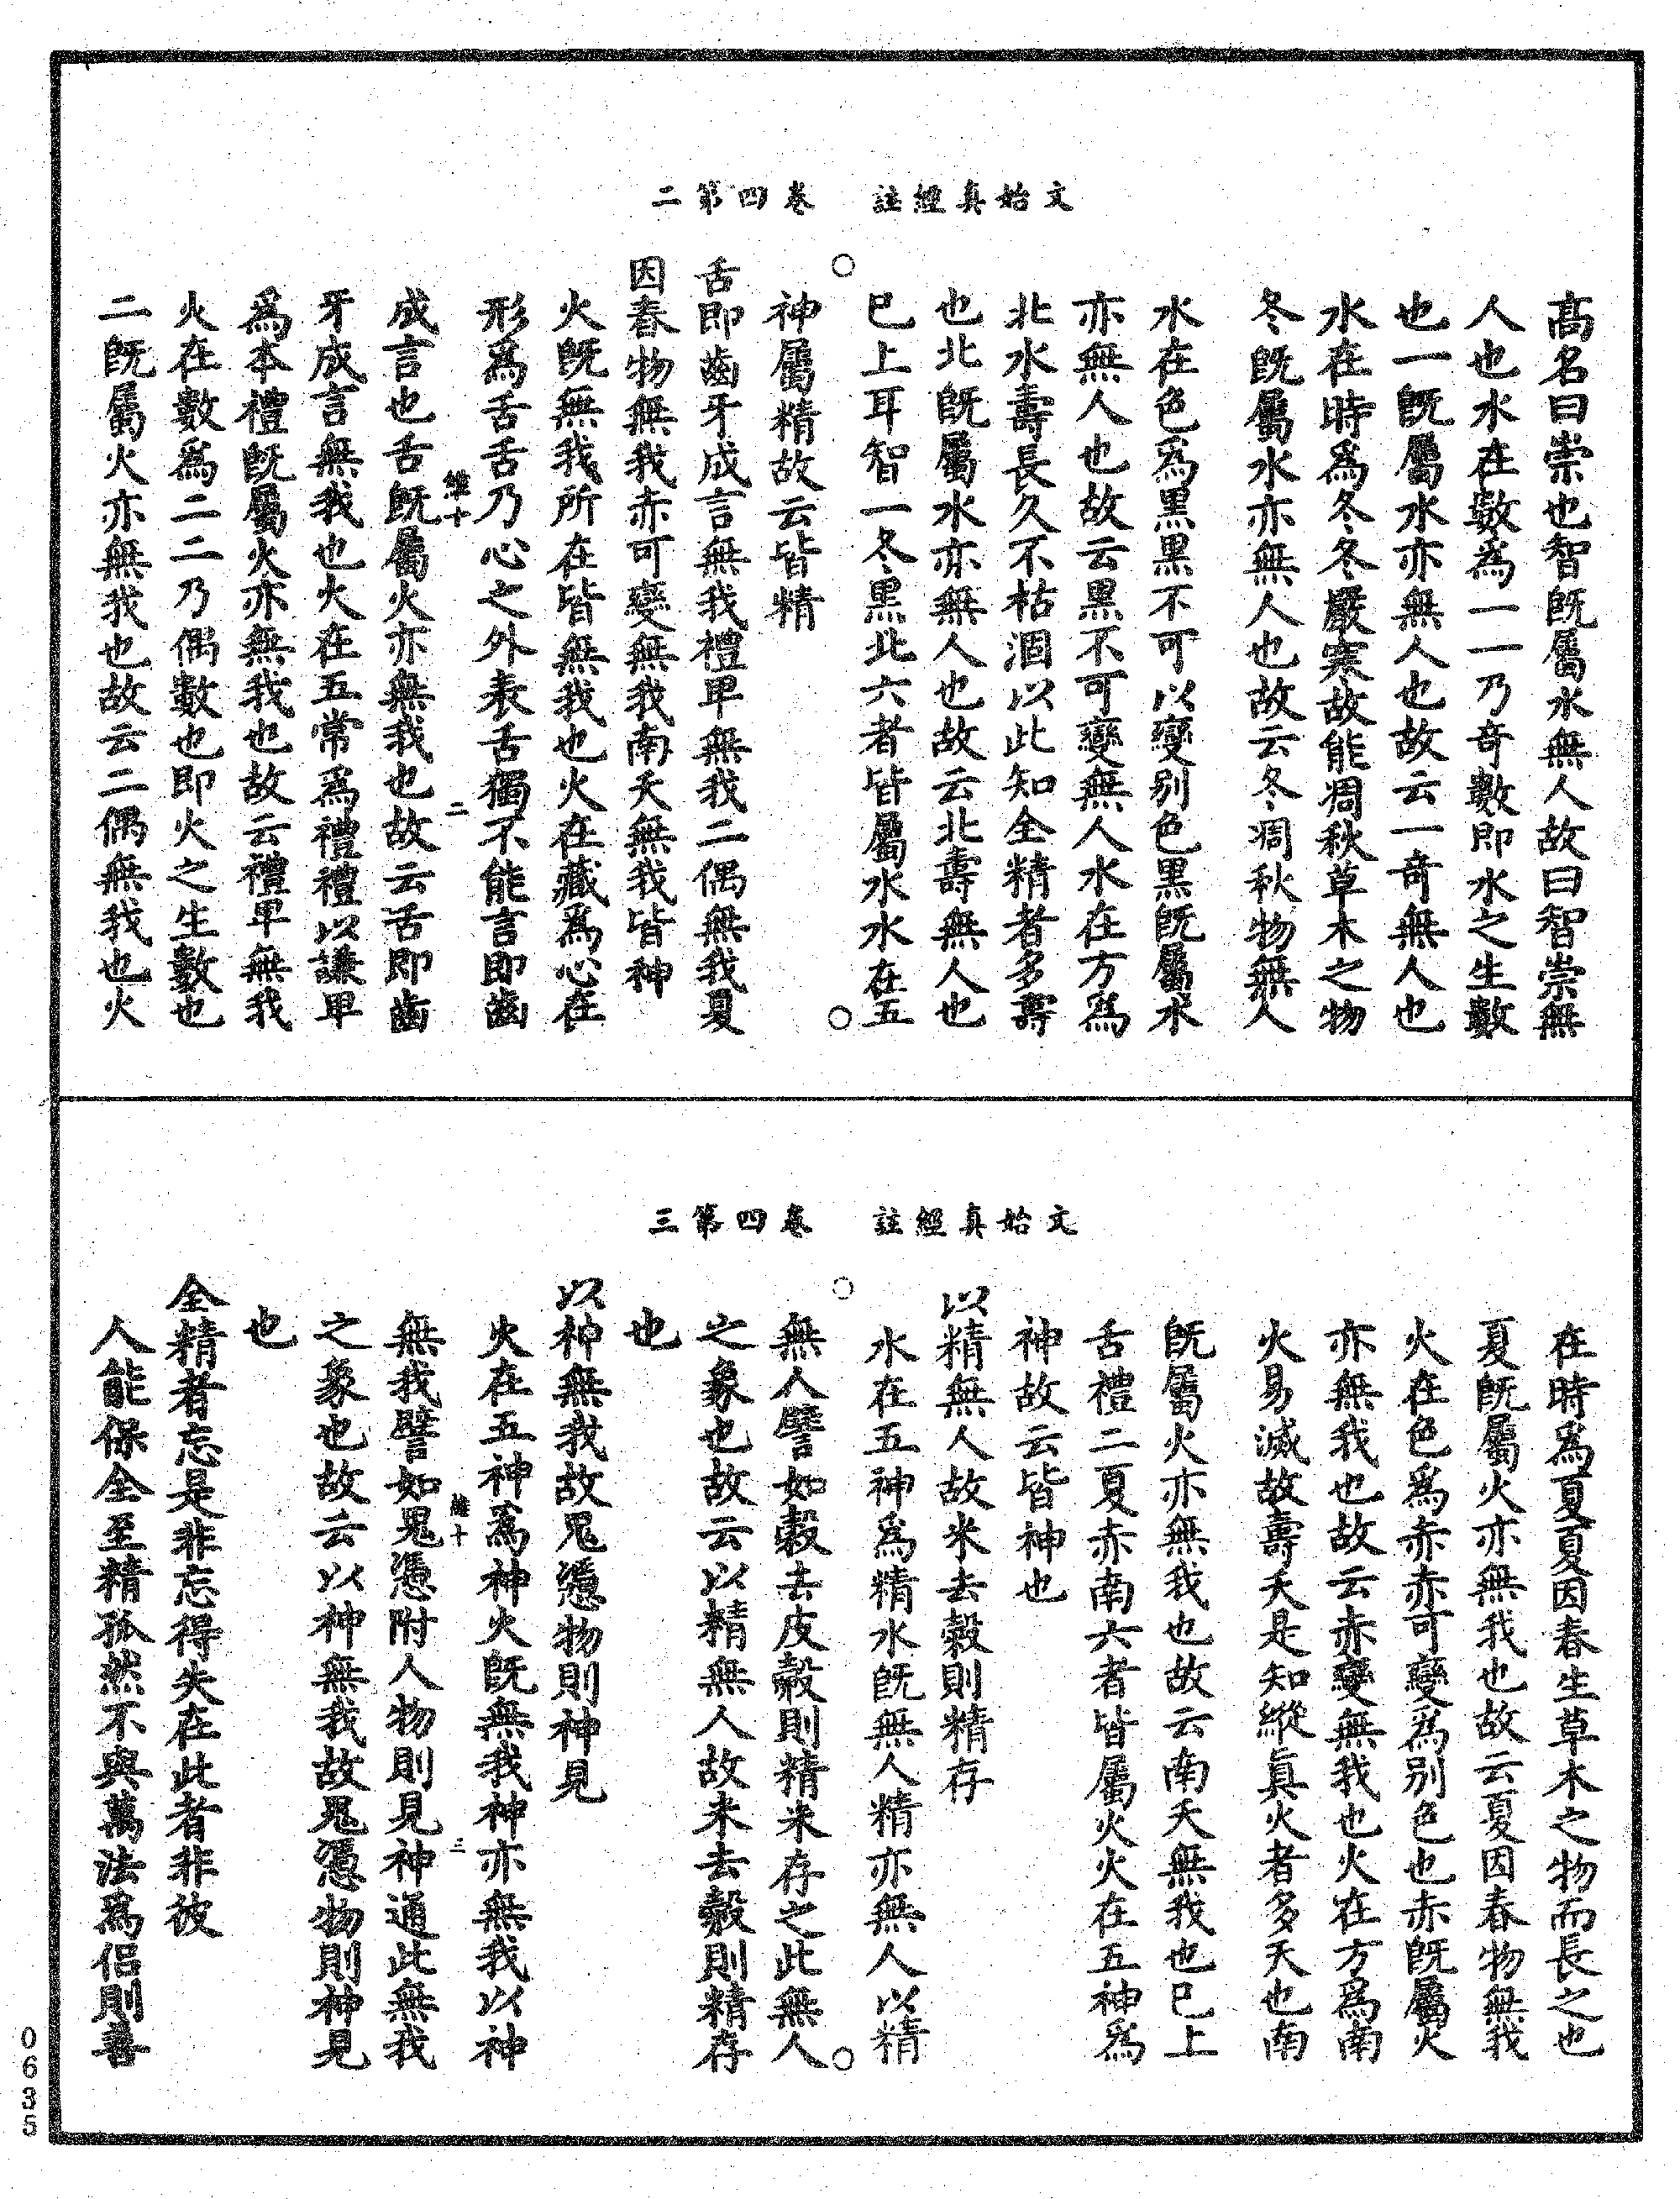 文始真經註　卷四第二
高名曰崇也智旣屬水無人故曰智崇無
人也水在數為一一乃奇數即水之生數
也一旣屬水亦無人也故云一奇無人也
水在時為冬冬嚴寒故能凋秋草木之物
冬旣屬水亦無人也故云冬凋秋物無人
水在色為黑黑不可以變别色黑旣屬水
亦無人也故云黑不可變無人水在方為
北水壽長久不枯涸以此知全精者多壽
也北旣屬水亦無人也故云北壽無人也
已上耳智一冬黑北六者皆屬水水在五
神屬精故云皆精
舌即齒牙成言無我禮卑無我二偶無我夏
因春物無我赤可變無我南夭無我皆神
火旣無我所在皆無我也火在藏為心在
形為舌舌乃心之外表舌獨不能言即齒
維十　二
成言也舌旣屬火亦無我也故云舌即齒
牙成言無我也火在五常為禮禮以謙卑
為本禮旣屬火亦無我也故云禮卑無我
火在數為二二乃偶數也即火之生數也
二旣屬火亦無我也故云二偶無我也火
文始真經註　卷四第三
在時為夏夏因春生草木之物而長之也
夏旣屬火亦無我也故云夏因春物無我
火在色為赤赤可變為别色也赤旣屬火
亦無我也故云赤變無我也火在方為南
火易滅故壽夭是知縱真火者多夭也南
旣屬火亦無我也故云南夭無我也已上
舌禮二夏赤南六者皆屬火火在五神為
神故云皆神也
以精無人故米去穀則精存
水在五神為精水旣無人精亦無人以精
無人譬如穀去皮穀則精米存之此無人
之象也故云以精無人故米去穀則精存
也
以神無我故鬼憑物則神見
火在五神為神火旣無我神亦無我以神
維十　三
無我譬如鬼憑附人物則見神通此無我
之象也故云以神無我故鬼憑物則神見
也
全精者忘是非忘得失在此者非彼
人能保全至精孤然不與萬法為侶則善
0635